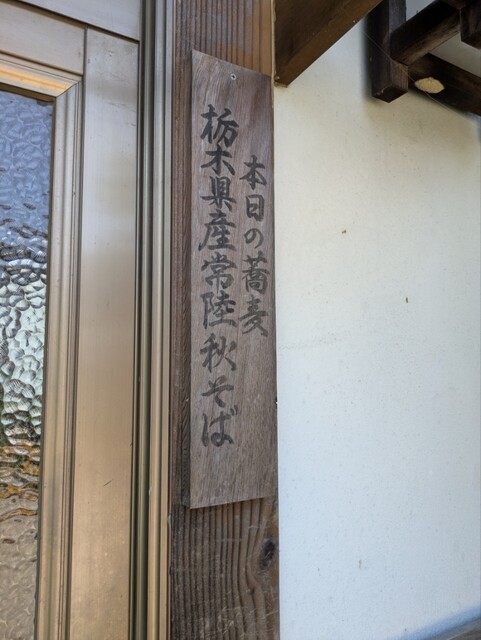 本日の蕎麦
栃木県産常陸秋そば